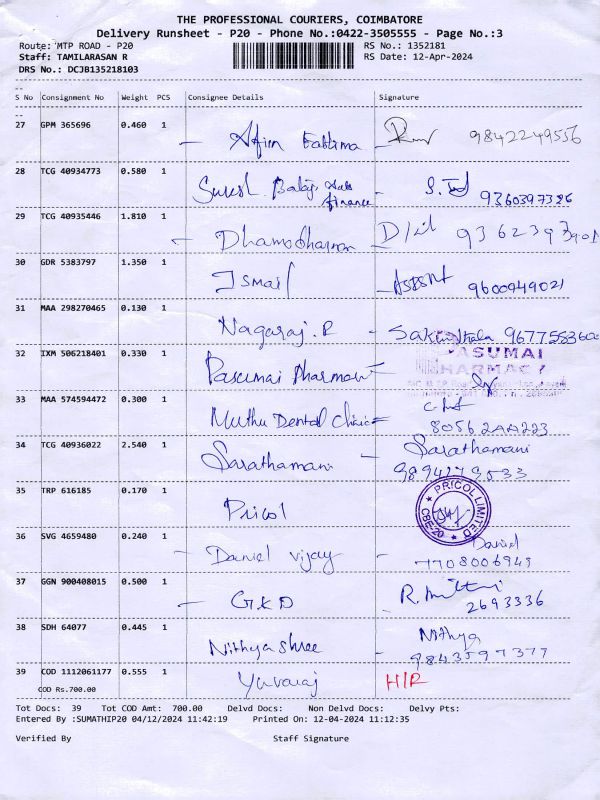 THE PROFESSIONAL COURIERS, COIMBATORE
Delivery Runsheet - P20 - Phone No.:0422-3505555 - Page No.:3
Route: MTP ROAD - P20
RS No.: 1352181
Staff: TAMILARASAN R
RS Date: 12-Apr-2024
DRS No.: DCJB135218103
S No Consignment No Weight PCS Consignee Details Signature
27 GPM 365696 0.460 1 Fathima 9842249556
28 TCG 40934773 0.580 1 Suresh Balaji finance
29 TCG 40935446 1.810 1 Dhamodharan
30 GDR 5383797 1.350 1 Ismail 9600949021
31 MAA 298270465 0.130 1 Nagaraj.R
32 IXM 506218401 0.330 1 Pasumai Pharmacy PASUMAI
PHARMACY
33 MAA 574594472 0.300 1 Muthu Dental Clinic
34 TCG 40936022 2.540 1 Sarathamani Sarathamani
35 TRP 616185 0.170 1 Pricol PRICOL LIMITED
CBE-20
36 SVG 4659480 0.240 1 Daniel Vijay Daniel
7708006949
37 GGN 900408015 0.500 1 GKD
2693336
38 SDH 64077 0.445 1 Nithya shree Nithya
9843597377
39 COD 1112061177 0.555 1 Yuvaraj H/R
COD Rs.700.00
Tot Docs: 39 Tot COD Amt: 700.00 Delvd Docs: Non Delvd Docs: Delvy Pts:
Entered By :SUMATHIP20 04/12/2024 11:42:19 Printed On: 12-04-2024 11:12:35
Verified By Staff Signature